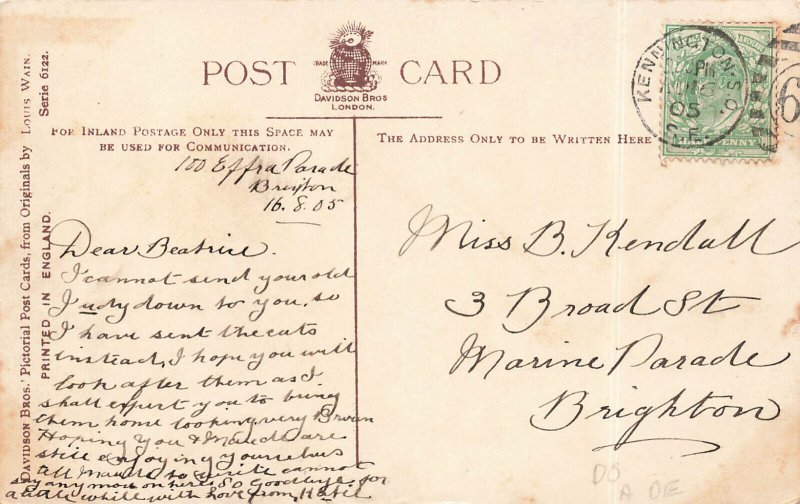 POST CARD
TRADE MARK
DAVIDSON BROS
LONDON.
FOR INLAND POSTAGE ONLY THIS SPACE MAY
BE USED FOR COMMUNICATION.
THE ADDRESS ONLY TO BE WRITTEN HERE
DAVIDSON BROS.' Pictorial Post Cards, from Originals by LOUIS WAIN.
Serie 6122.
PRINTED IN ENGLAND.
KENNINGTON S.O.
PM
05
S.E
PENNY
6
100 Effra Parade
Brixton
16.8.05
Dear Beatrice.
I cannot send your old
Judy down to you, so
I have sent the cats
instead, I hope you will
look after them as I
shall expect you to bring
them home looking very Brown
Hoping You & Maude are
still enjoying yourselves
tell Maude to write cannot
say any more on here. So Goodbye. for
a little while with love from
Miss B. Kendall
3 Broad St
Marine Parade
Brighton